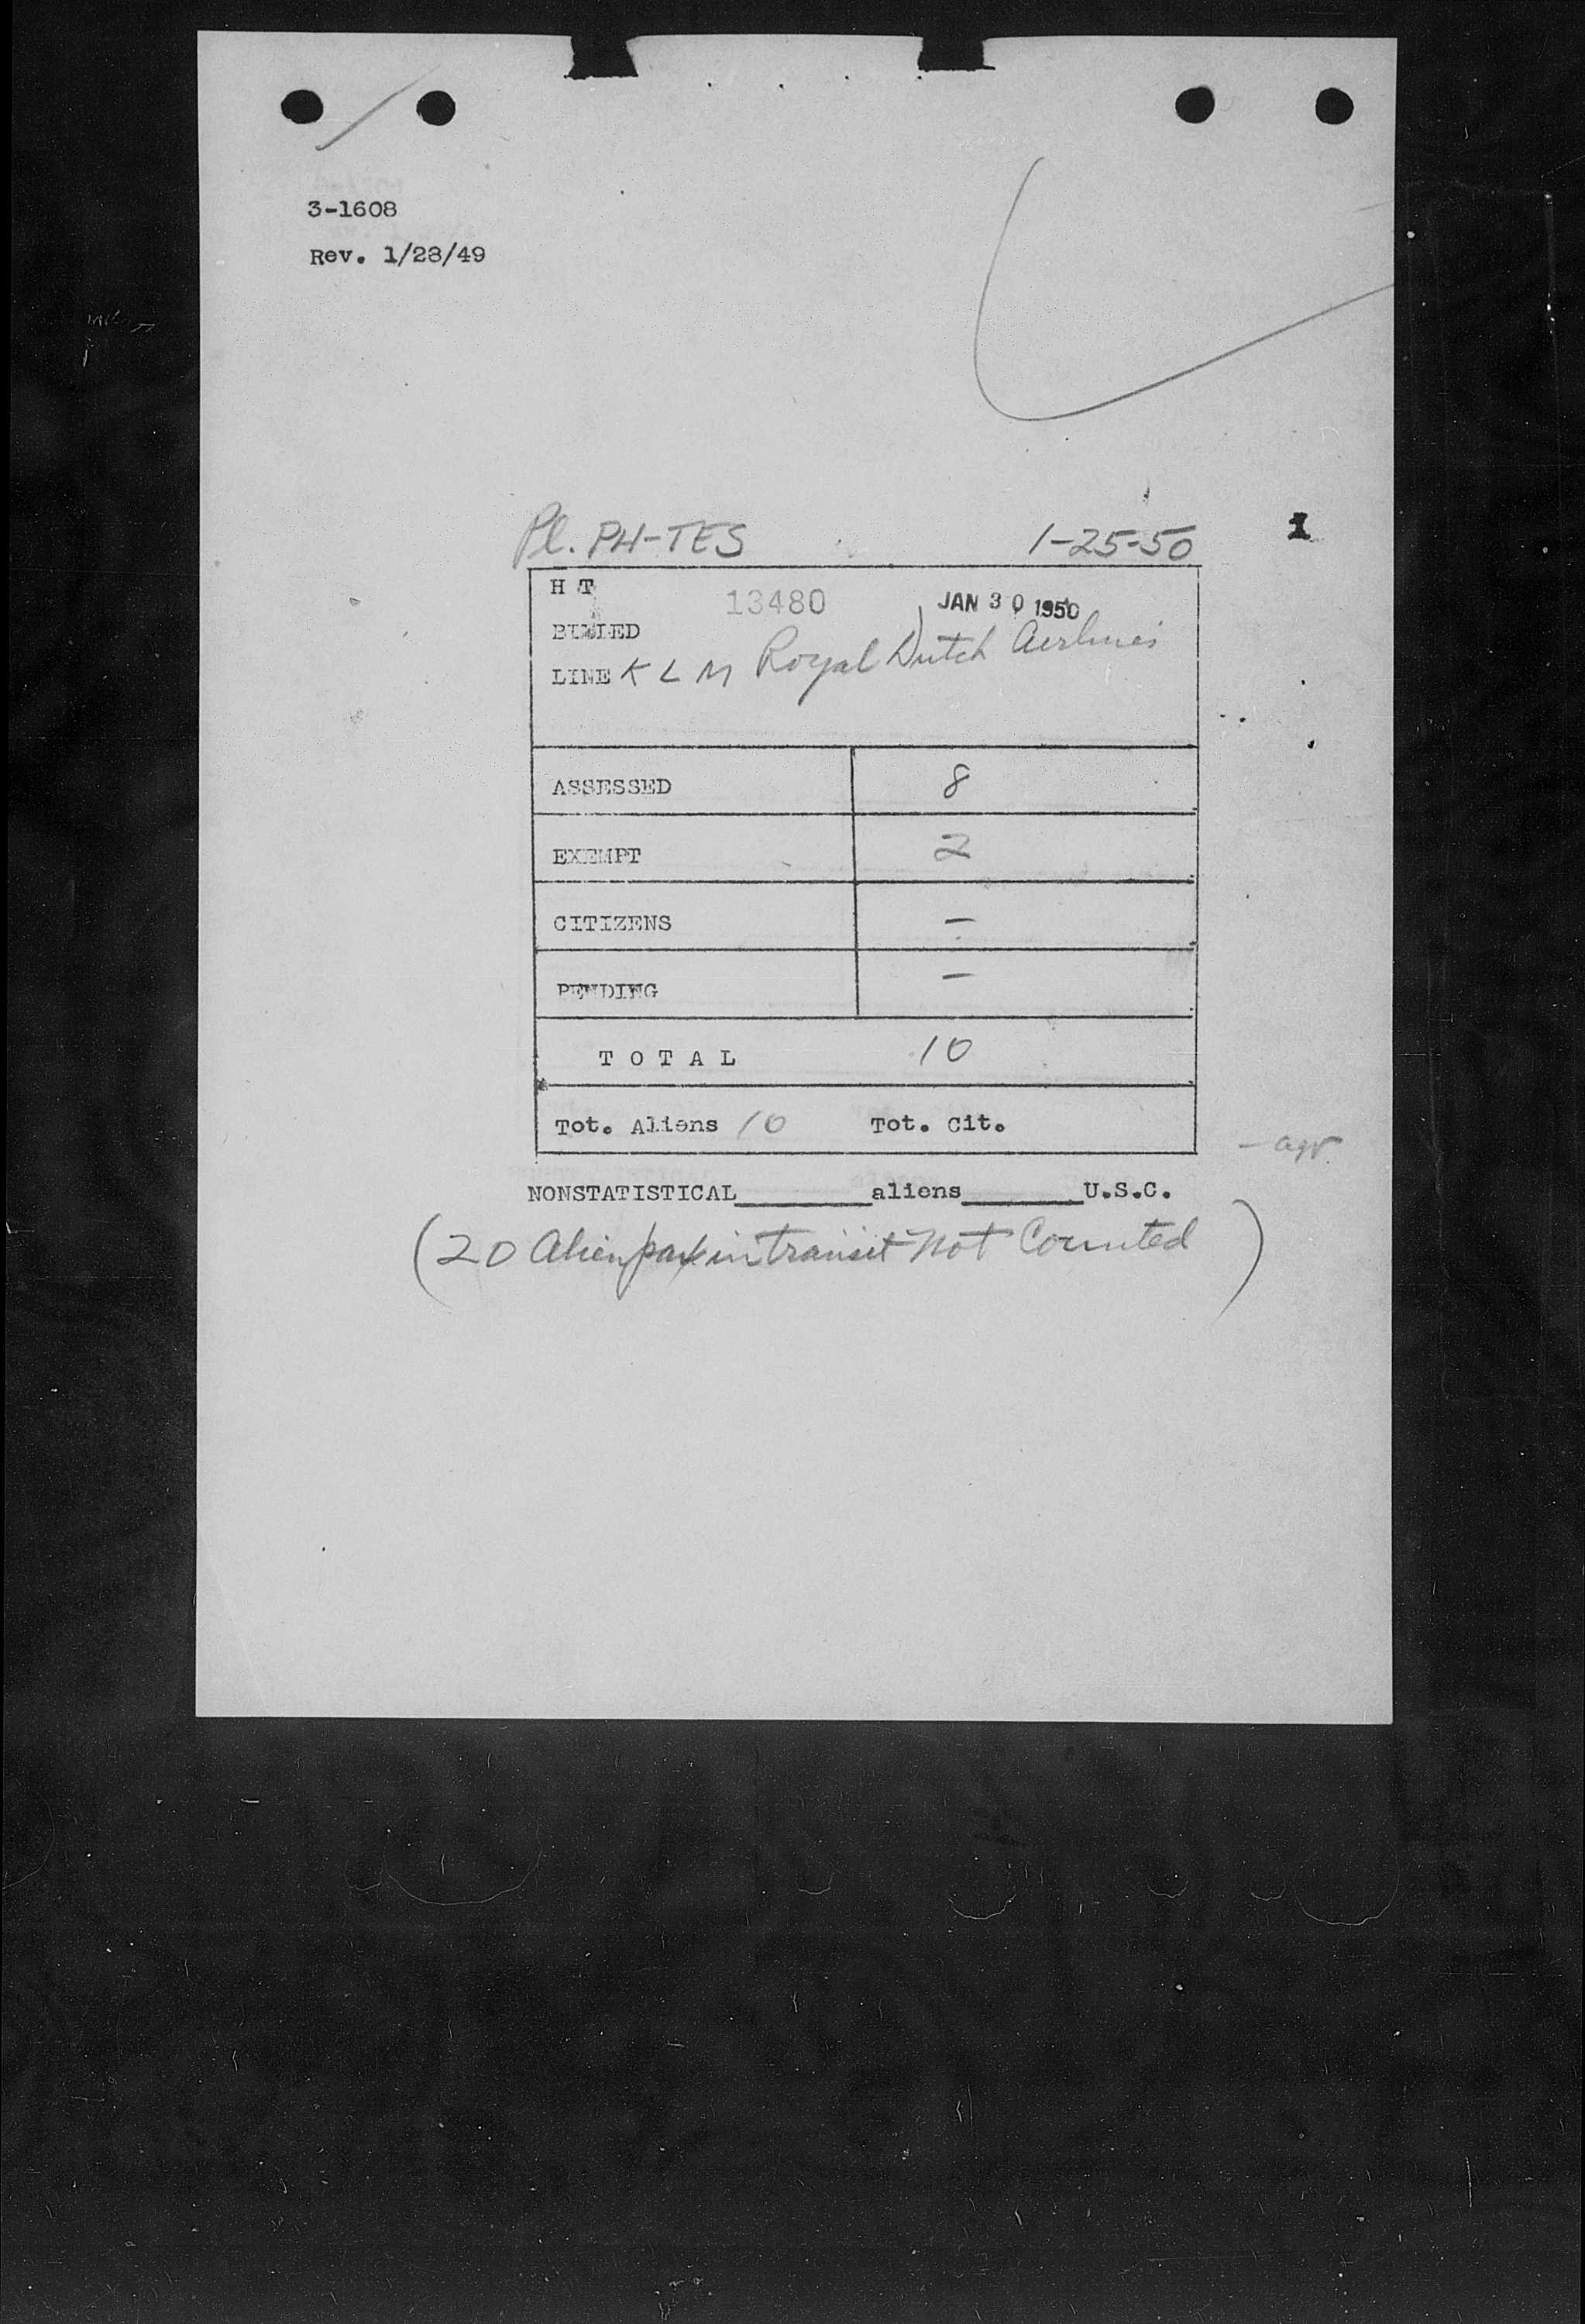 3-1608
Rev. 1/28/49
Pl. PH-TES 1-25-50 1
H T 13480 JAN 30 1950
BILLED
LINE K L M Royal Dutch Airlines
ASSESSED 8
EXEMPT 2
CITIZENS –
PENDING –
T O T A L 10
Tot. Aliens 10 Tot. Cit.
NONSTATISTICAL________aliens_______U.S.C.
(20 Alien pax in transit Not Counted)